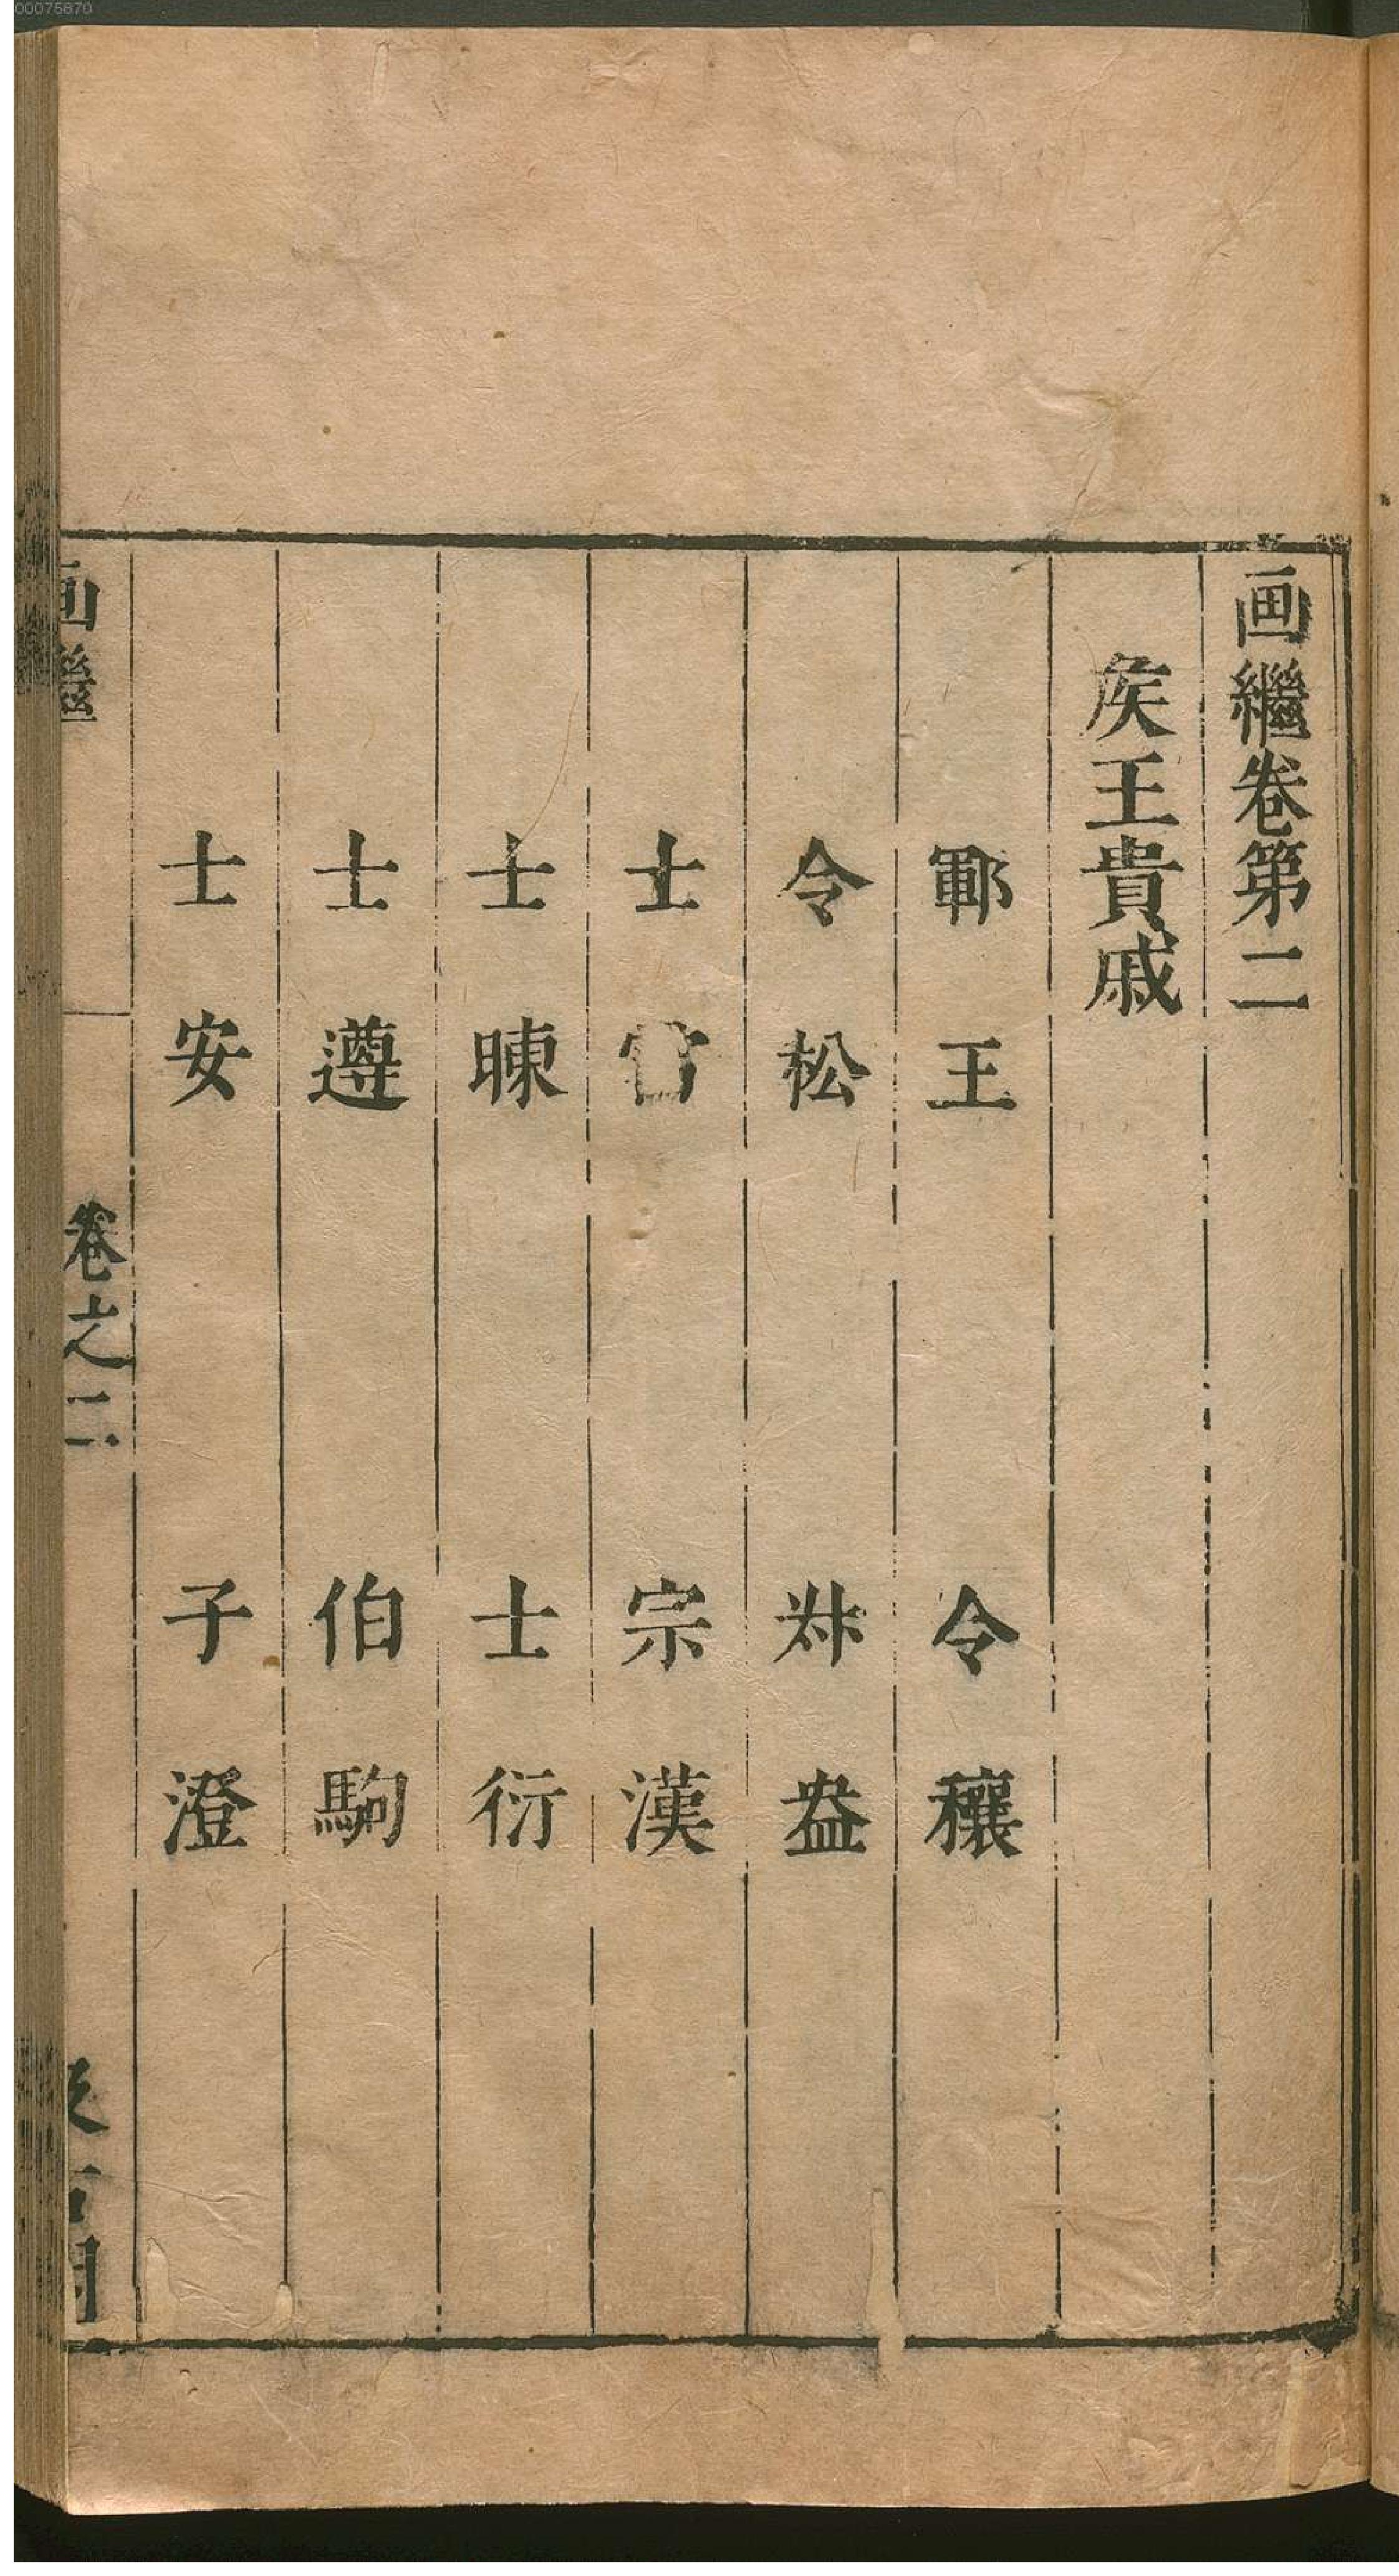 画繼卷第二
矦王貴戚
鄆王　令穰
令松　叔盎
士　宗漢
士暕　士衍
士遵　伯駒
士安　子澄
画繼　卷之二　汲古閣
00075870